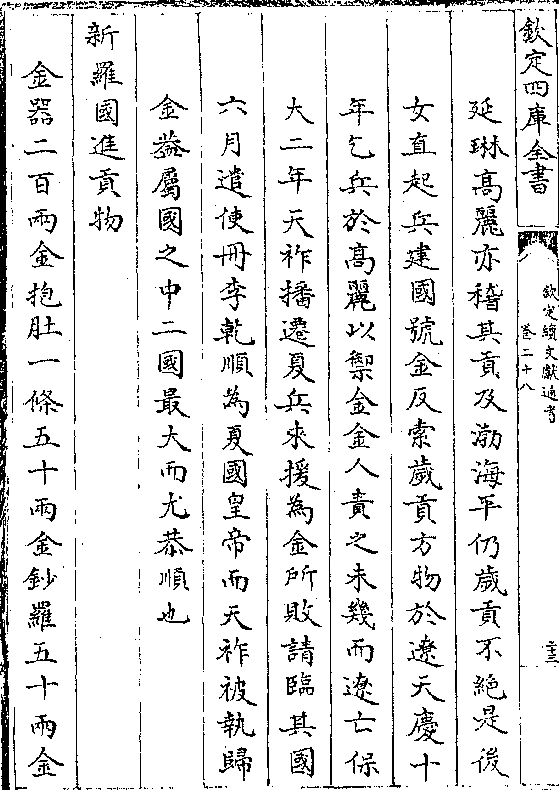 欽定四庫全書
欽定續文獻通考
卷二十八
二十三
延琳髙麗亦稽其貢及渤海平仍歲貢不絶是後
女直起兵建國號金反索歲貢方物於遼天慶十
年乞兵於髙麗以禦金金人責之未幾而遼亡保
大二年天祚播遷夏兵來援為金所敗請臨其國
六月遣使冊李乾順為夏國皇帝而天祚被執歸
金葢屬國之中二國最大而尤恭順也
新羅國進貢物
金器二百兩金抱肚一條五十兩金鈔羅五十兩金